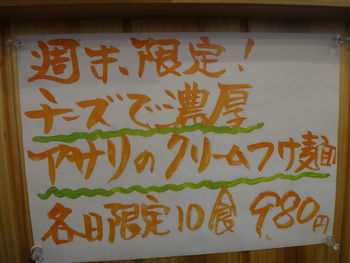 週末、限定!
チーズで濃厚
アサリのクリームつけ麺
各日限定10食 980円